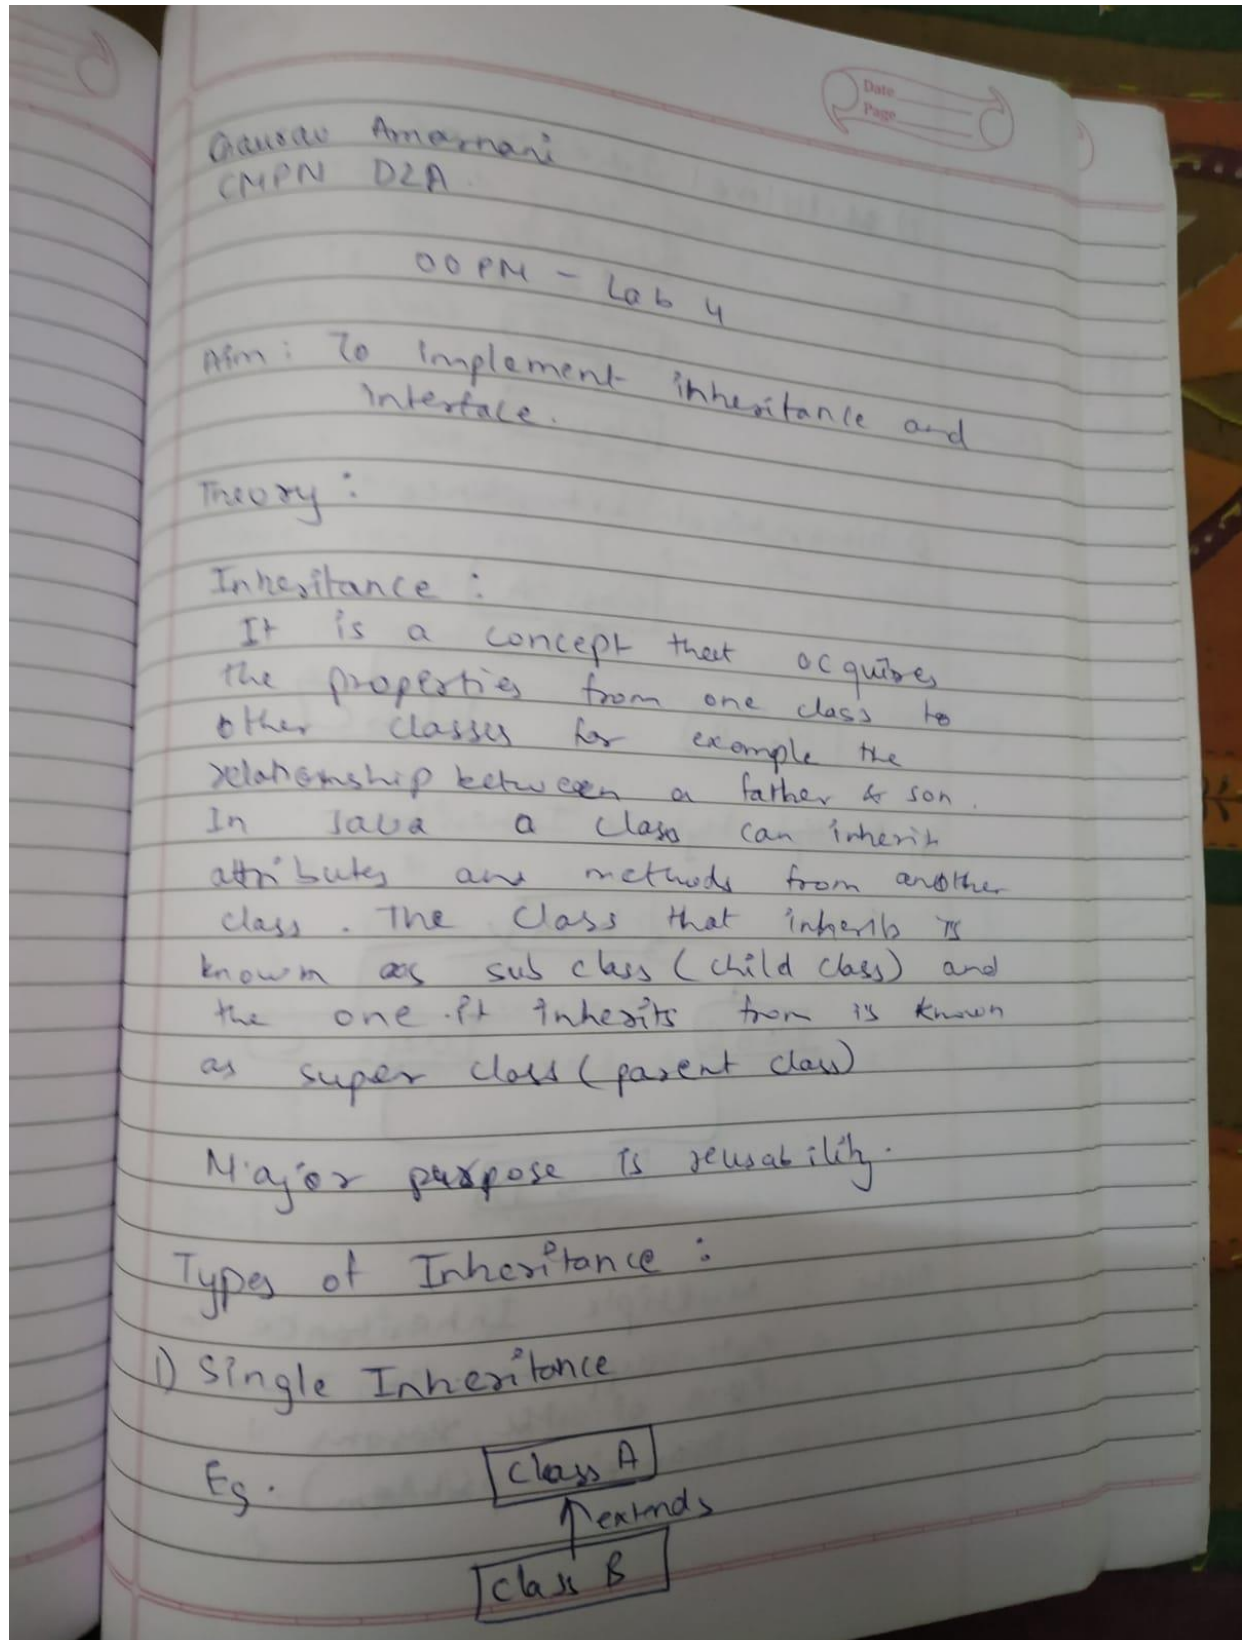 Date
Page
Gaurav Amarnani
CMPN D2A
OOPM - Lab 4
Aim: To implement inheritance and
interface.
Theory :
Inheritance :
It is a concept that acquires
the properties from one class to
other classes for example the
relationship between a father & son.
In Java a class can inherit
attributes and methods from another
class. The class that inherits is
known as sub class (child class) and
the one it inherits from is known
as super class (parent class)
Major purpose is reusability.
Types of Inheritance :
1) Single Inheritance
Eg.
class A
extends
class B